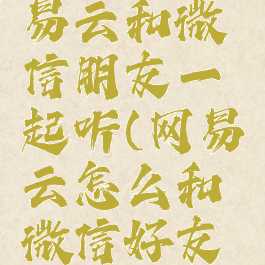 易云和微
信朋友一
起听(网易
云怎么和
微信好友